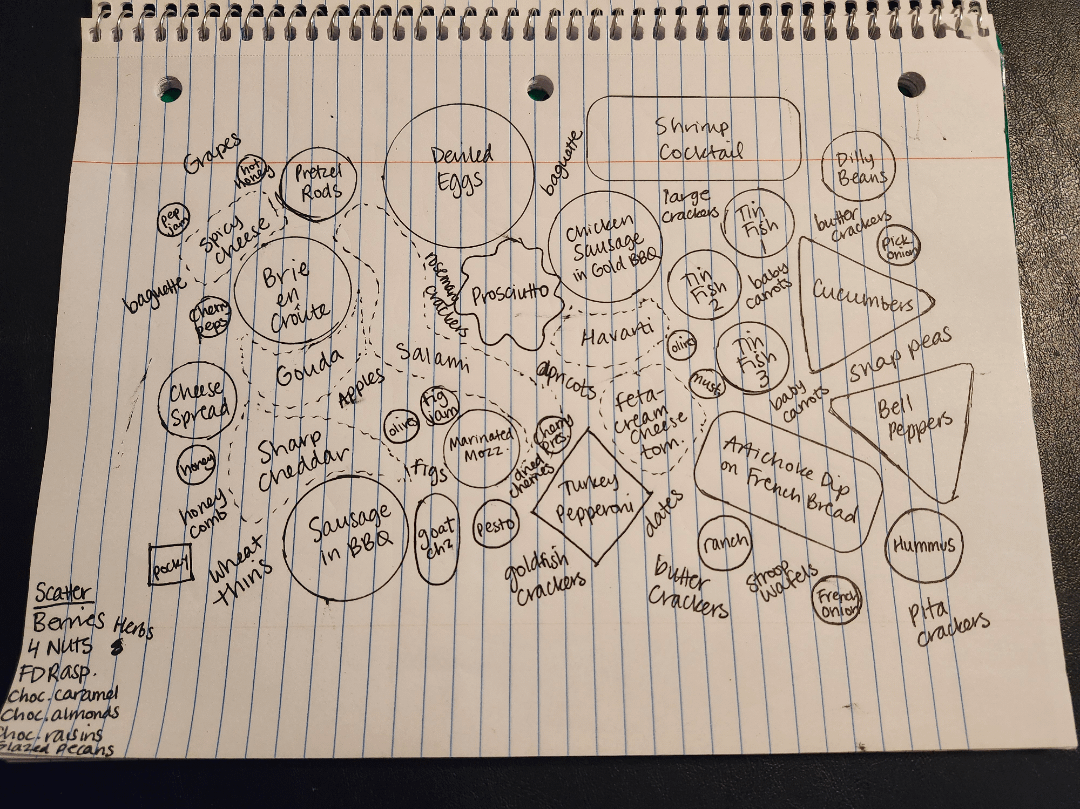 Grapes
hot
honey
Pretzel
Rods
Deviled
Eggs
baguette
Shrimp
Cocktail
Dilly
Beans
pep
jam
spicy
cheese
baguette
Brie
en
croûte
cherry
peps
Gouda
rosemary
crackers
Prosciutto
Chicken
Sausage
in Gold BBQ
large
crackers
Tin
Fish
1
Tin
Fish
2
baby
carrots
Tin
Fish
3
butter
crackers
pick
onion
Cucumbers
snap peas
Havarti
olive
must
baby
carrots
Bell
Peppers
Cheese
Spread
honey
honey
comb
pocky
Apples
Salami
apricots
Sharp
cheddar
olive
fig
jam
figs
Marinated
Mozz.
cherry
pres.
dried
cherries
feta-
cream
cheese
tom.
Turkey
Pepperoni
dates
Artichoke Dip
on French Bread
wheat
thins
Sausage
in BBQ
goat
chz
pesto
goldfish
crackers
butter
crackers
ranch
stroop
wafels
French
onion
Hummus
pita
crackers
Scatter
Berries Herbs
4 Nuts
FD Rasp.
choc. caramel
choc. almonds
choc. raisins
Glazed pecans